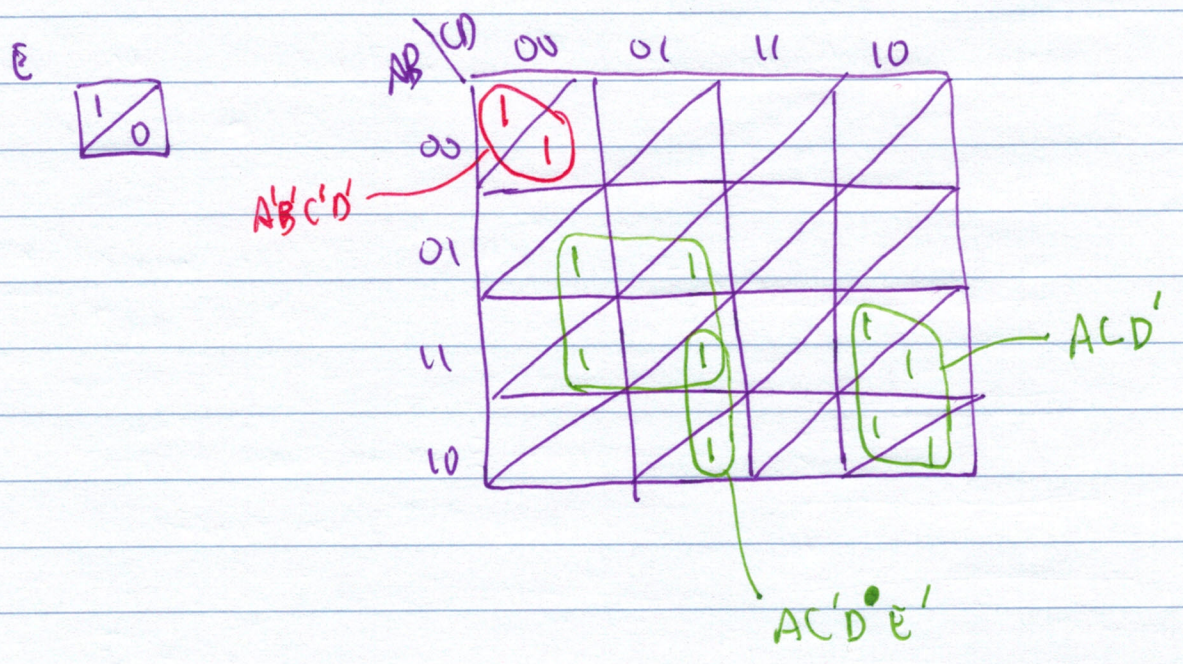 E
1
0
AB \ CD
00 01 11 10
00 1 1
A'B'C'D'
01 1 1
11 1 1 1 1
ACD'
10 1 1 1
AC'D E'